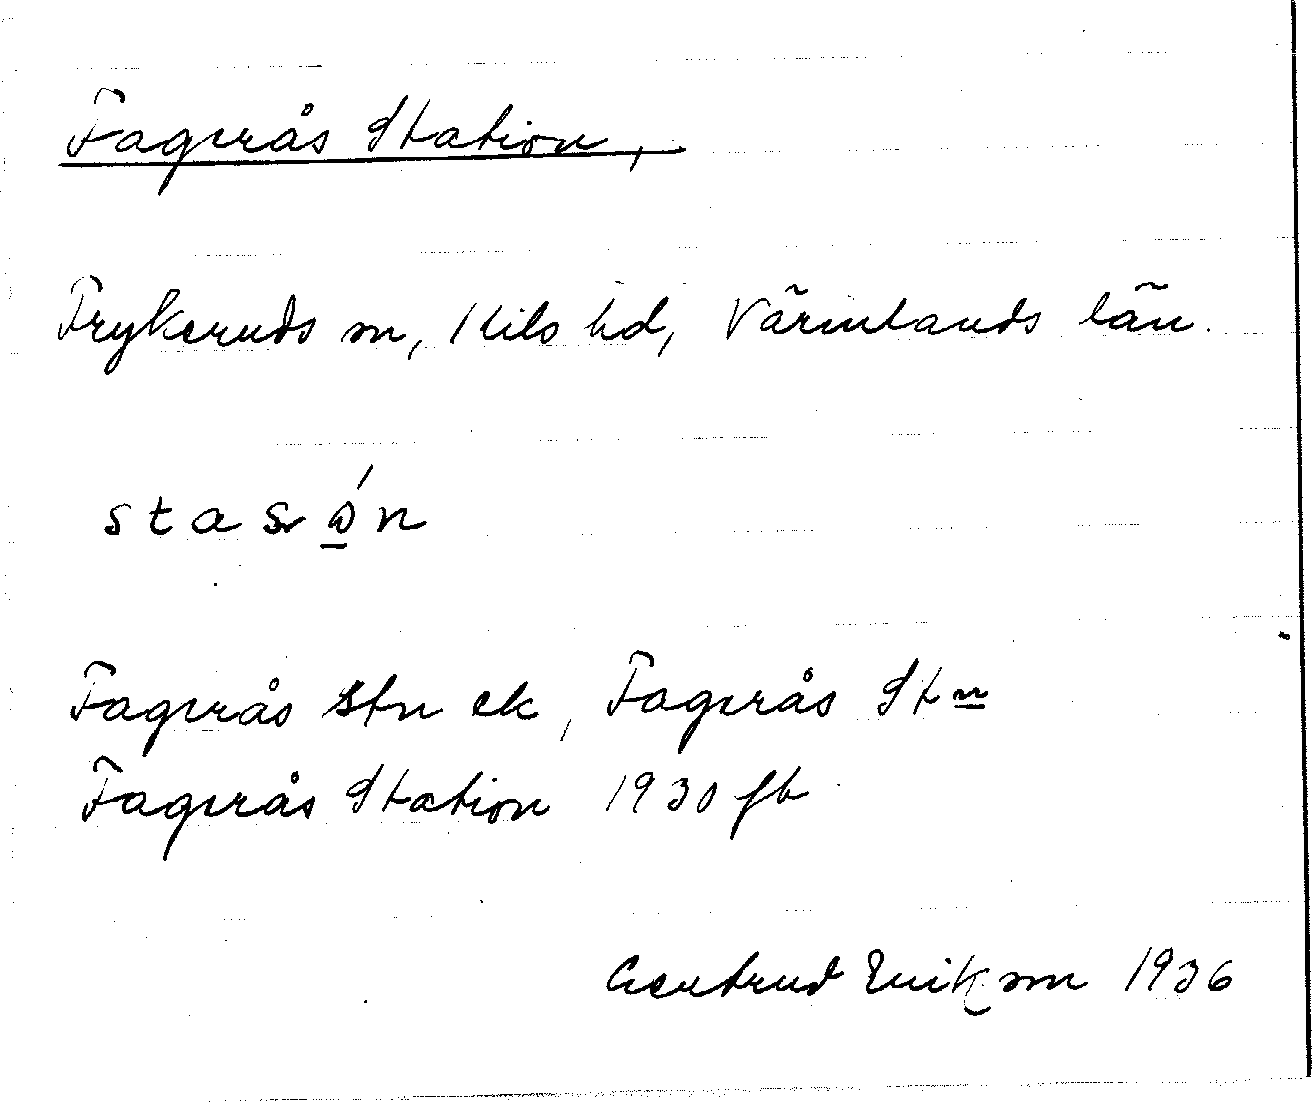 Fagerås Station,
Frykeruds sn, Kils hd, Värmlands län.
Fagerås Stn ek, Fagerås Stn
Fagerås Station 1930 fb
Gertrud Erikson 1936